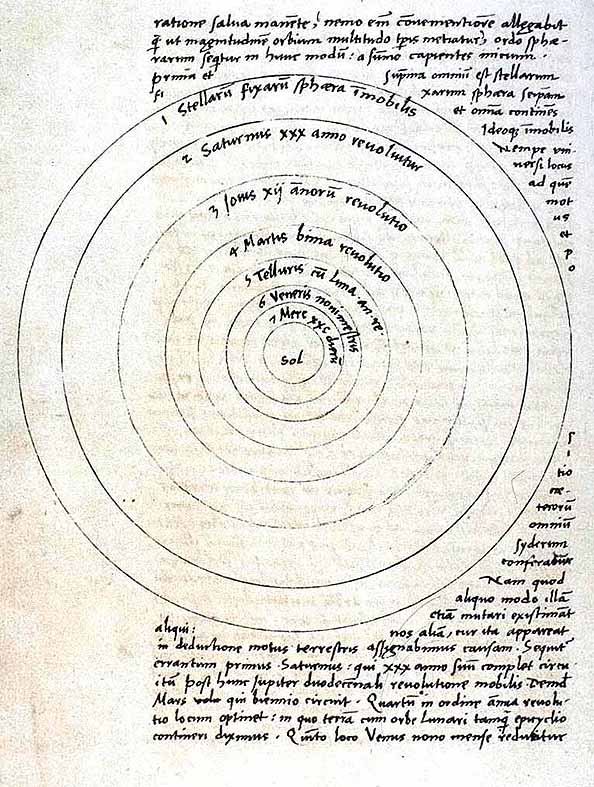 ratione salua manẽte, nemo em̃ cõuenientiorẽ allegabit
q̃ ut magnitudinẽ orbium multitudo tp̃is metiatur, ordo sphæ-
rarum seq̃tur in hunc modũ: a sum̃o capientes inicium.
prima et
fi
Supma omniũ est stellarum
xarum sphæra seipsam
et omnia continẽs
Ideoq̃ imobilis
Nempe vni
uersi locus
ad quẽ
mot
us
et
p
o
1 Stellarũ fixarũ sphæra imobilis
2 Saturnus xxx anno reuoluitur
3 Jouis xij ãnorũ reuolutio
4 Martis bima reuolutio
5 Telluris cũ luna an. re.
6 Veneris nonimestris
7 Merc xxc dierũ
Sol
s
i
tio
cæ-
terorũ
omniũ
syderum
conferatur
Nam quod
aliquo modo illã
etiã mutari existimãt
aliqui:
nos aliã, cur ita appareat
in deductione motus terrestris assignabimus causam. Sequit̃
errantium primus Saturnus: qui xxx anno suũ complet circu-
itũ Post hunc Jupiter duodecẽnali reuolutione mobilis Demd̃
Mars qui biennio circuit. Quartũ in ordine ãnua reuolu-
tio locum optinet: in quo terrã cum orbe Lunari tamq̃ epicyclio
contineri diximus. Quĩto loco Venus nono mense reducitur